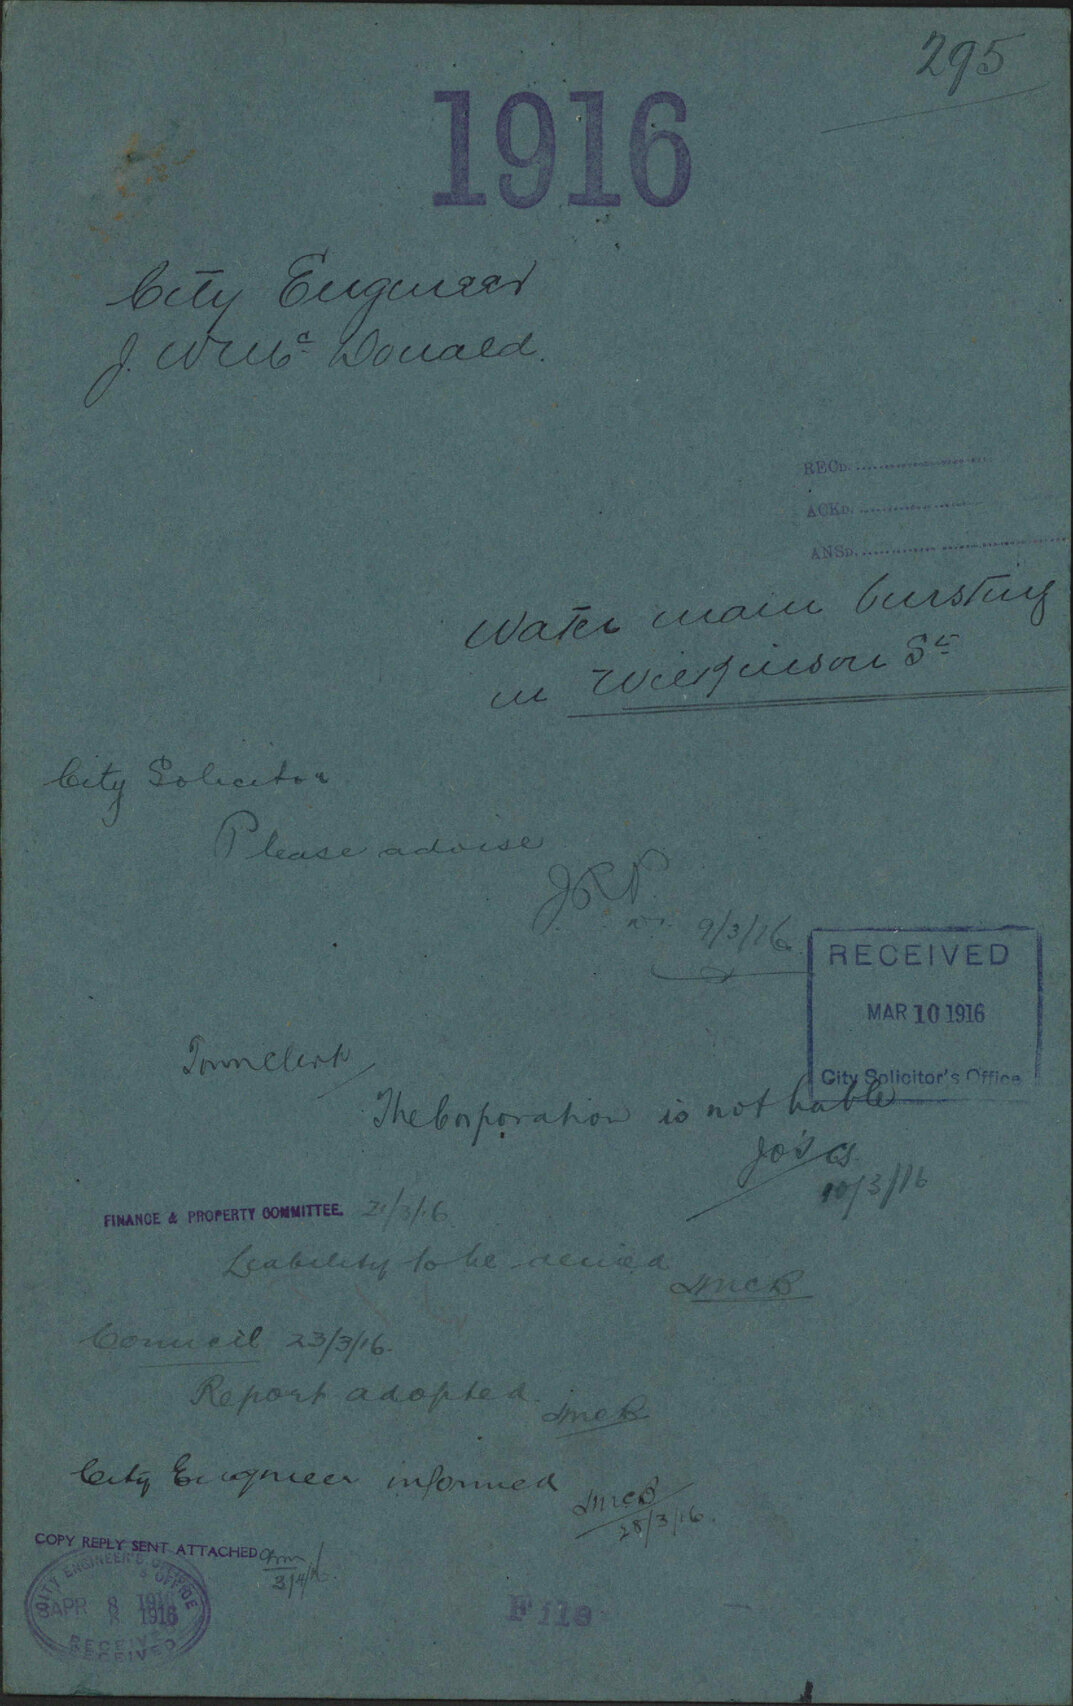 295
1916
City Engineer
J. W. Mc Donald.
RECD.
ACKD.
ANSD.
Water main bursting
in Wilkinson St
City Solicitor
Please advise
9/3/16
RECEIVED
MAR 10 1916
City Solicitor's Office
Town Clerk
The Corporation is not liable
10/3/16
FINANCE & PROPERTY COMMITTEE. 21/3/16
Liability to be denied
Council 23/3/16.
Report adopted.
City Engineer informed
28/3/16.
COPY REPLY SENT ATTACHED
3/4/16.
CITY ENGINEER'S OFFICE
APR 8 1916
RECEIVED
File